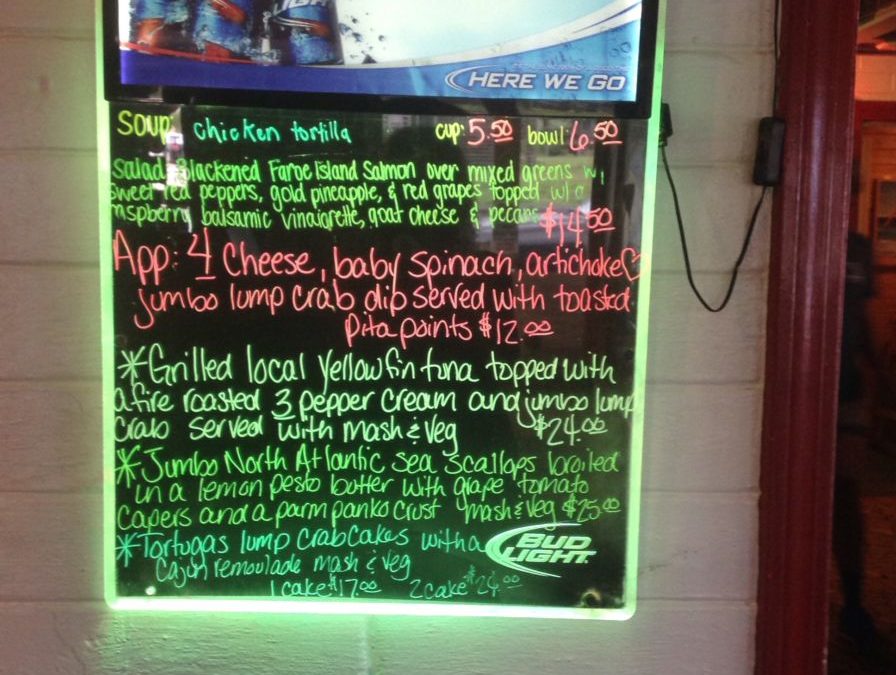 HERE WE GO
Soup: chicken tortilla cup: 5.50 bowl: 6.50
Salad: Blackened Faroe Island Salmon over mixed greens w/
sweet red peppers, gold pineapple, & red grapes topped w/ a
raspberry balsamic vinaigrette, goat cheese & pecans $14.50
App: 4 Cheese, baby spinach, artichoke
jumbo lump crab dip served with toasted
Pita points $12.00
*Grilled local yellowfin tuna topped with
a fire roasted 3 pepper cream and jumbo lump
crab served with mash & veg $24.00
*Jumbo North Atlantic sea scallops broiled
in a lemon pesto butter with grape tomato
capers and a parm panko crust mash & veg $25.00
*Tortugas lump crab cakes with a
cajun remoulade mash & veg
1 cake $17.00 2 cake $24.00
BUD
LIGHT